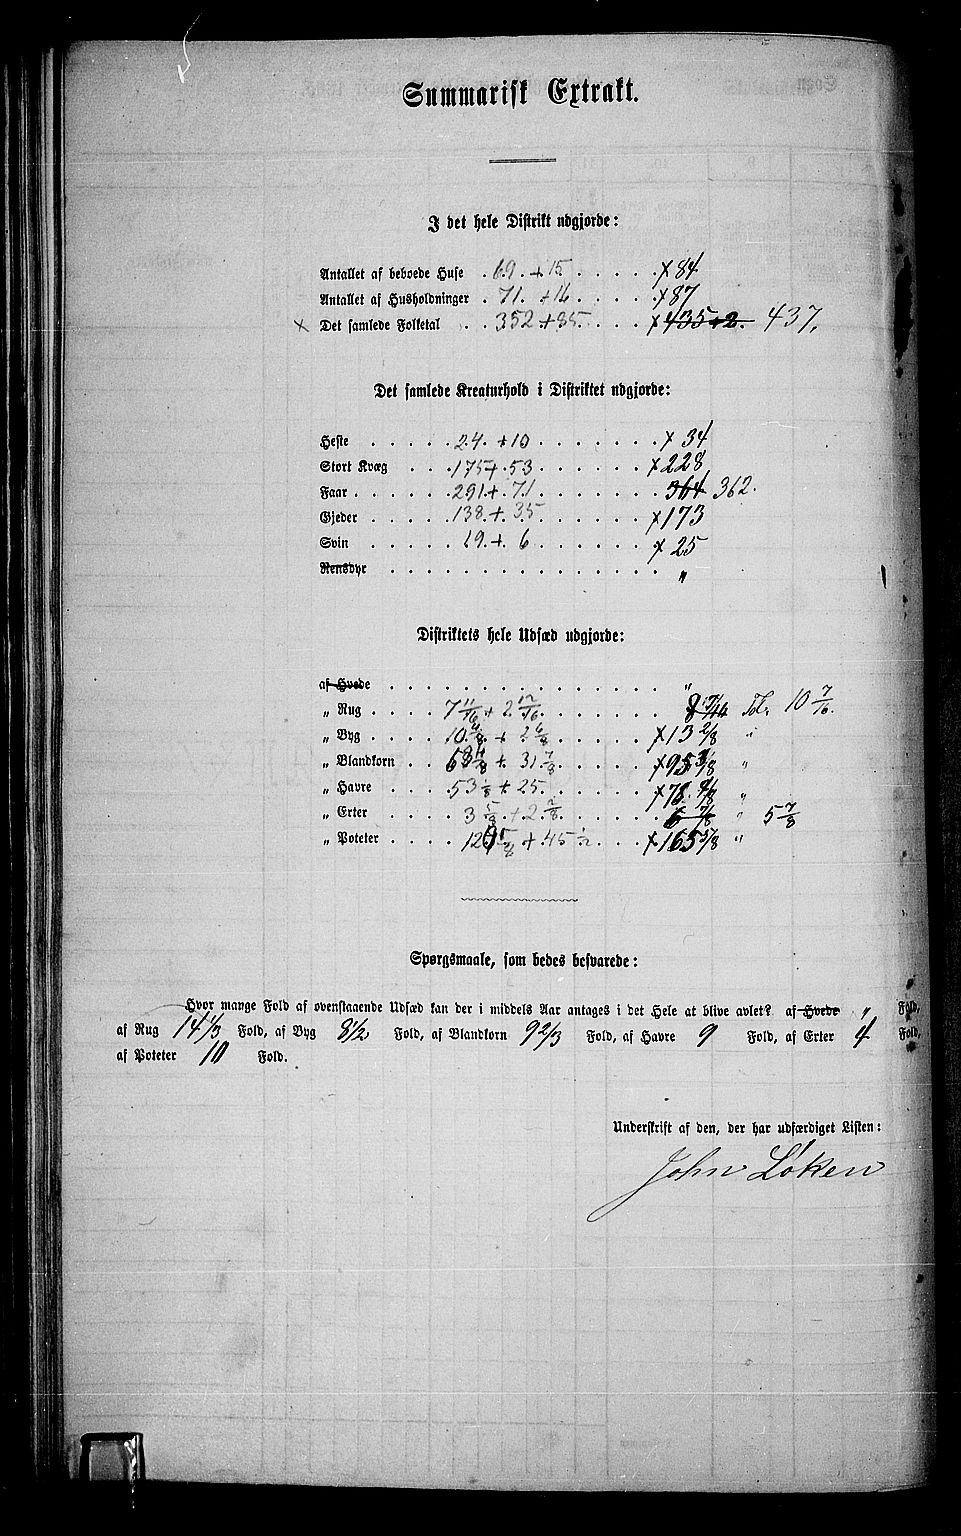 Summarisk Extrakt.
I det hele Distrikt udgjorde:
Antallet af beboede Huse 69. + 15 x 84
Antallet af Husholdninger 71. + 16 x 87
x Det samlede Folketal 352 + 85 x 435 + 2. 437.
Det samlede Kreaturhold i Distriktet udgjorde:
Heste 24. + 10 x 34
Stort Kvæg 175 + 53 x 228
Faar 291 + 71 364 362.
Gjeder 138. + 35 x 173
Svin 19. + 6 x 25
Rensdyr "
Distriktets hele Udsæd udgjorde:
af Hvede "
" Rug 7 11/16 + 2 12/16 Tdr. 10 7/16.
" Byg + 2 6/8 x 13 2/8 "
" Blandkorn + 31 7/8 "
" Havre 53 1/8 + 25 "
" Erter 3 5/8 + 2 2/8 6 7/8 " 5 7/8
" Poteter + 45 1/2 x 165 5/8 "
Spørgsmaale, som bedes besvarede:
Hvor mange Fold af ovenstaaende Udsæd kan der i middels Aar antages i det Hele at blive avlet? af Hvede " Fold,
af Rug 14 1/3 Fold, af Byg 8 1/2 Fold, af Blandkorn 9 2/3 Fold, af Havre 9 Fold, af Erter 4 Fold,
af Poteter 10 Fold.
Underskrift af den, der har udfærdiget Listen:
John Løken